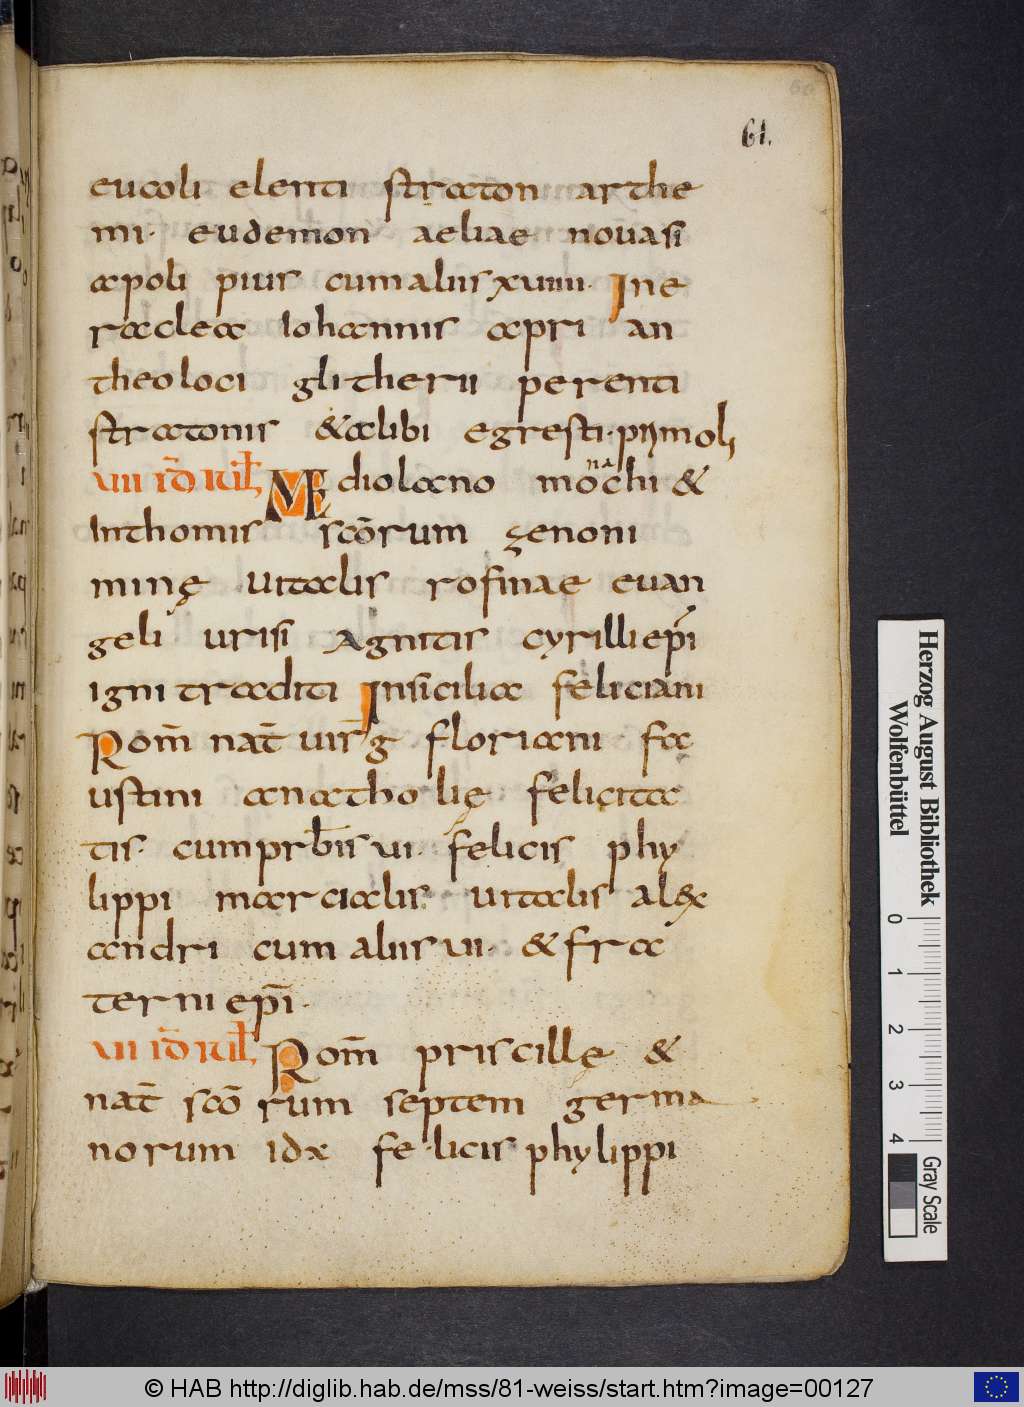 61.
eucoli elenti straton arthe
mi· eudemon aeliae nouasi
apoli pius cum aliis xuiiii· In e
raclea Iohannis apri an
theoloci glitherii perenti
stratonis & alibi egresti·
uiii id iul Mediolano monachi &
In thomis scōrum zenoni
minę uitalis rofinae euan
geli urisi Agnitis cyrilli ep̄i
igni traditi In sicilia feliciani
Rom̄ nat̄ uirg̅ floriani fa
ustini anatholię felicita
tis· cum prb̄is ui· felicis phy
lippi marcialis· uitalis alex
andri cum aliis ui· & fra
terni ep̄i·
ui id iul Rom̄ priscillę &
nat̄ scōrum septem germa
norum id÷ felicis phylippi
Herzog August Bibliothek
Wolfenbüttel
0 1 2 3 4
Gray Scale
© HAB http://diglib.hab.de/mss/81-weiss/start.htm?image=00127